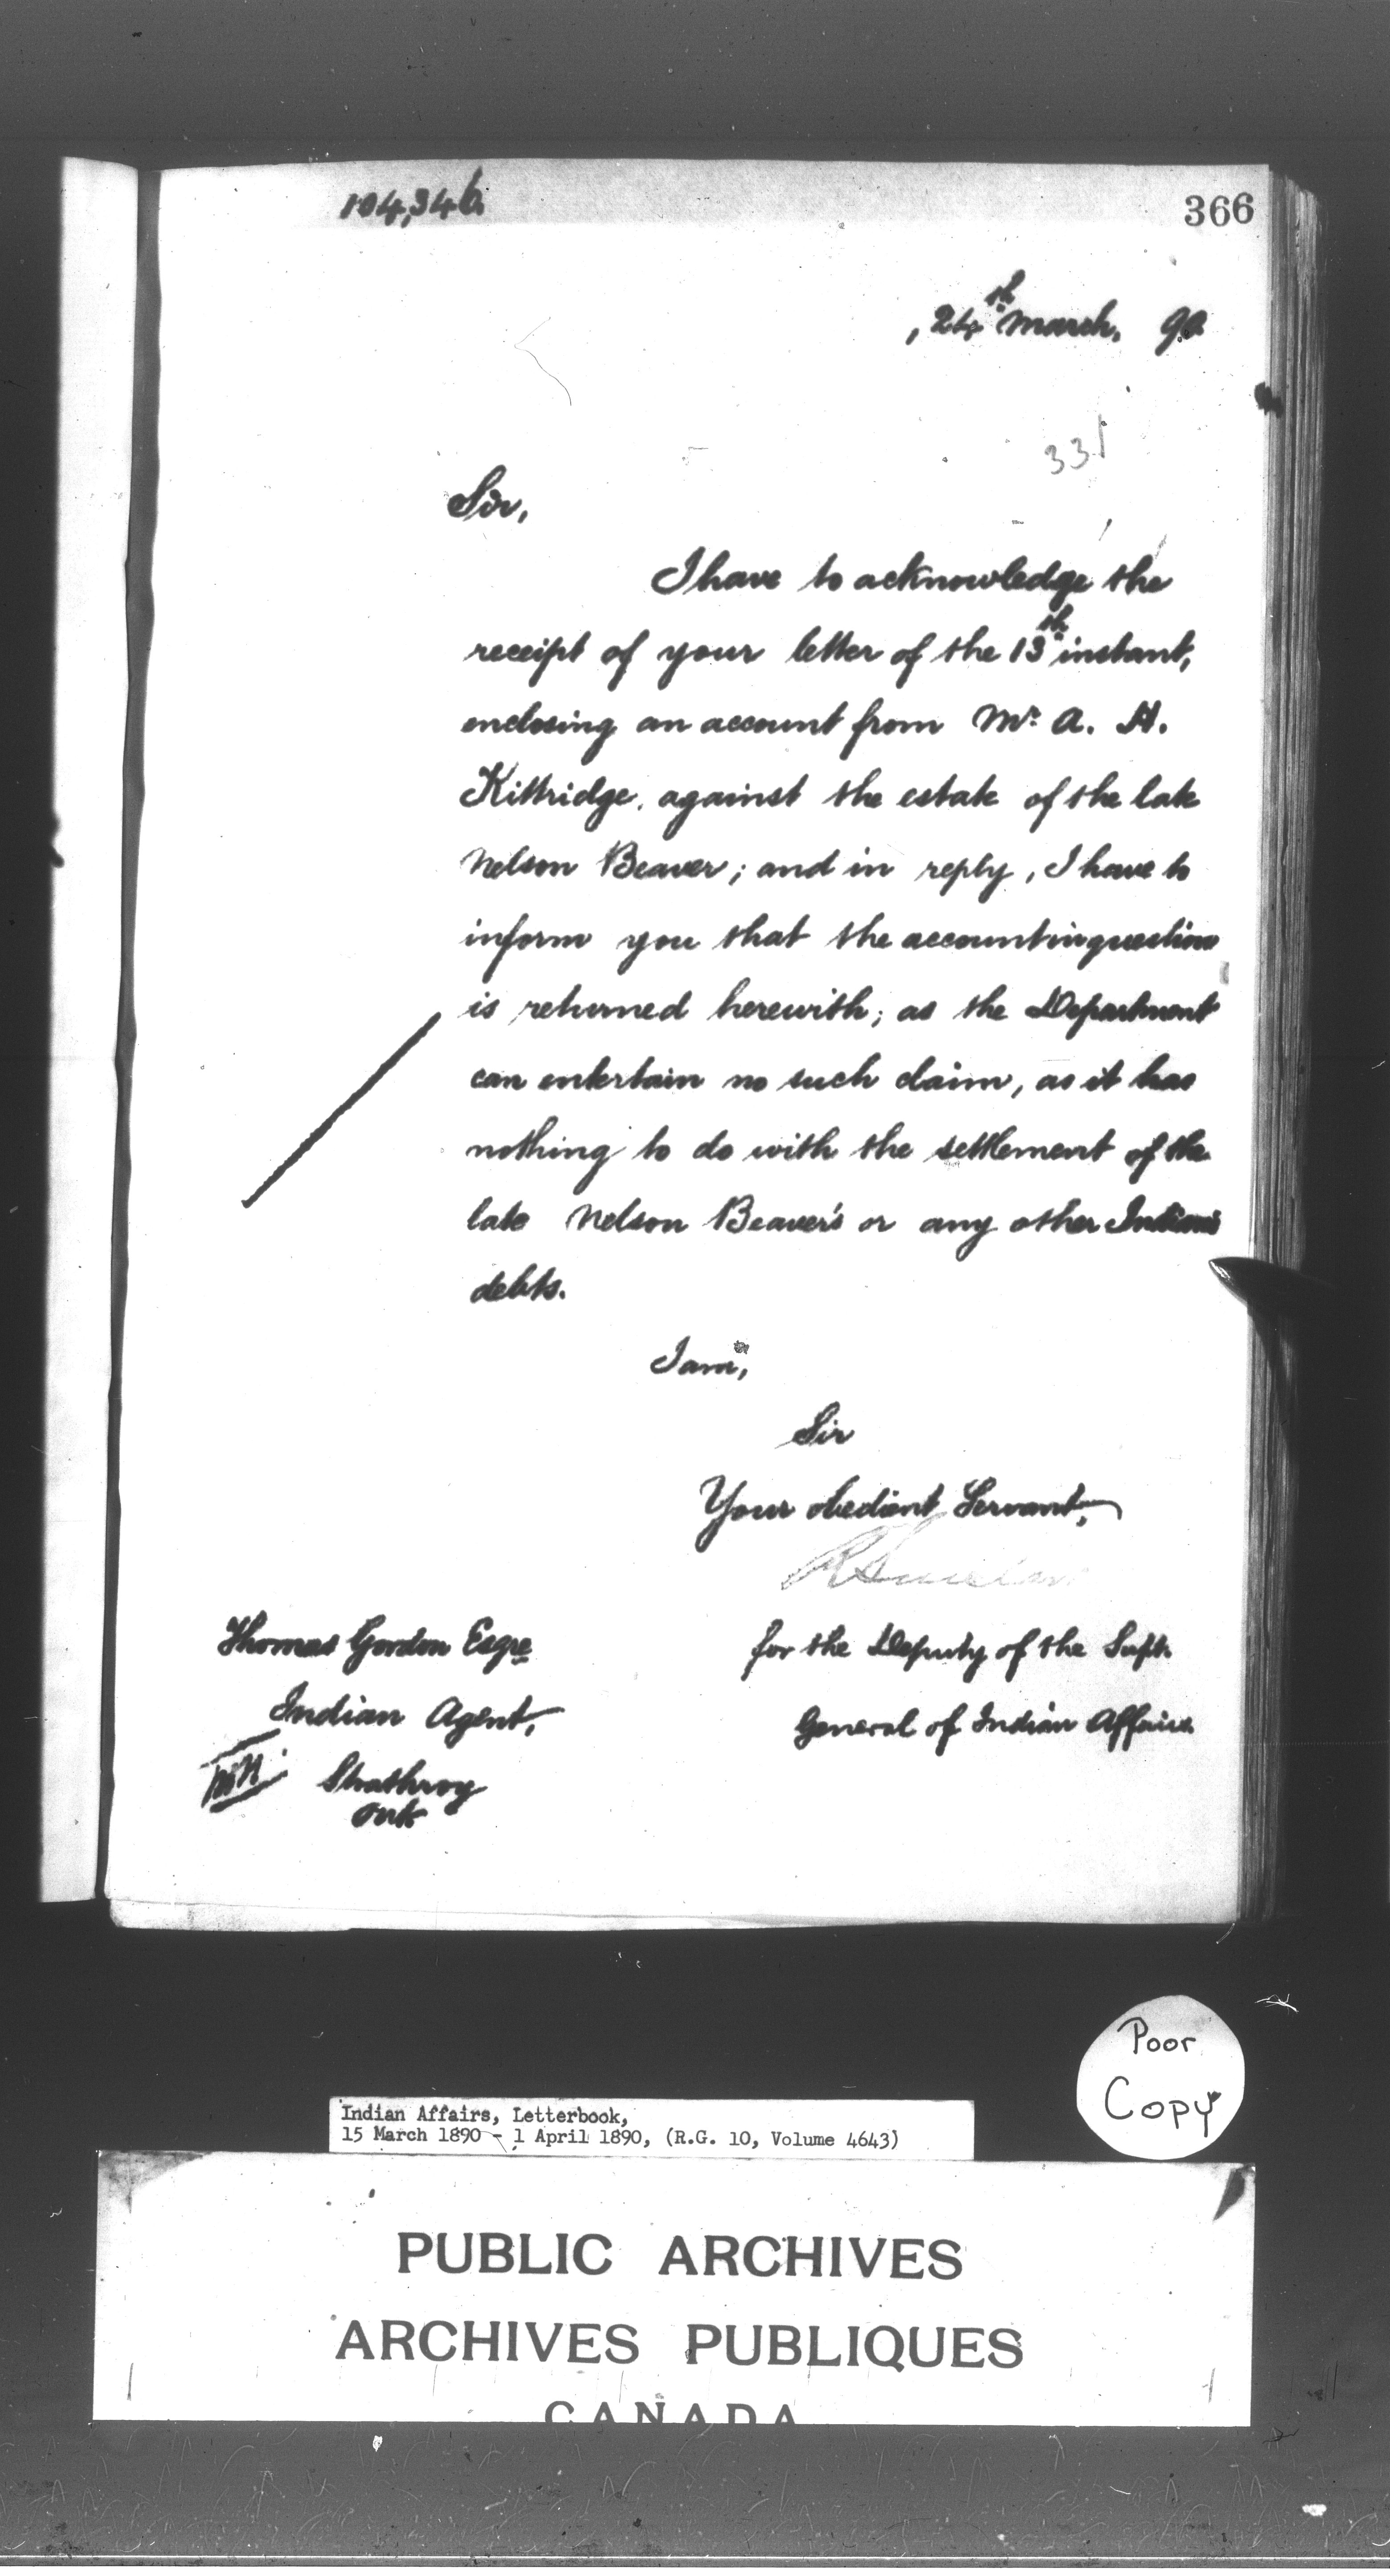 104,346
366
, 24th March, 90
331
Sir,
I have to acknowledge the
receipt of your letter of the 13th instant,
enclosing an account from Mr. A. H.
Kittridge, against the estate of the late
Nelson Beaver; and in reply, I have to
inform you that the account in question
is returned herewith; as the Department
can entertain no such claim, as it has
nothing to do with the settlement of the
late Nelson Beaver's or any other Indian's
debts.
I am,
Sir
Your obedient Servant,
for the Deputy of the Supt.
General of Indian Affairs.
Thomas Gordon Esqre
Indian Agent,
Strathroy
Ont
Poor
Copy
Indian Affairs, Letterbook,
15 March 1890 - 1 April 1890, (R.G. 10, Volume 4643)
PUBLIC ARCHIVES
ARCHIVES PUBLIQUES
CANADA